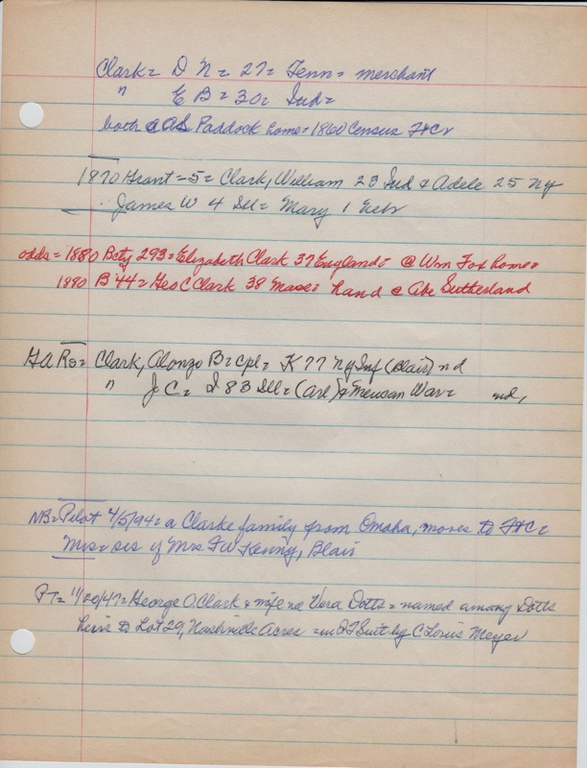 Clark = D N = 27 = Tenn = merchant
" E B = 30 = Ind =
both @ AS Paddock home = 1860 Census FtC
1870 Grant = 5 = Clark, William 23 Ind & Adele 25 NY
James W 4 Ill = Mary 1 Nebr
odds = 1880 Bcty 293 = Elizabeth Clark 37 England = @ Wm Fox home =
1880 B 44 = Geo C Clark 38 Mass = hand @ Abe Sutherland
GARs = Clark, Alonzo B = Cpl = K 77 NY Inf (Blair) nd
" J C = I 83 Ill = (Arl) & Mexican War = nd,
NB = Pilot 4/5/94 = a Clarke family from Omaha, moves to FtC =
Mrs = sis of Mrs FW Kenny, Blair
PT = 11/20/47 = George O. Clark & wife nee Vera Dotts = named among Dotts
heirs to Lot 29, Nashville Acres = in QT Suit by C Louis Meyer